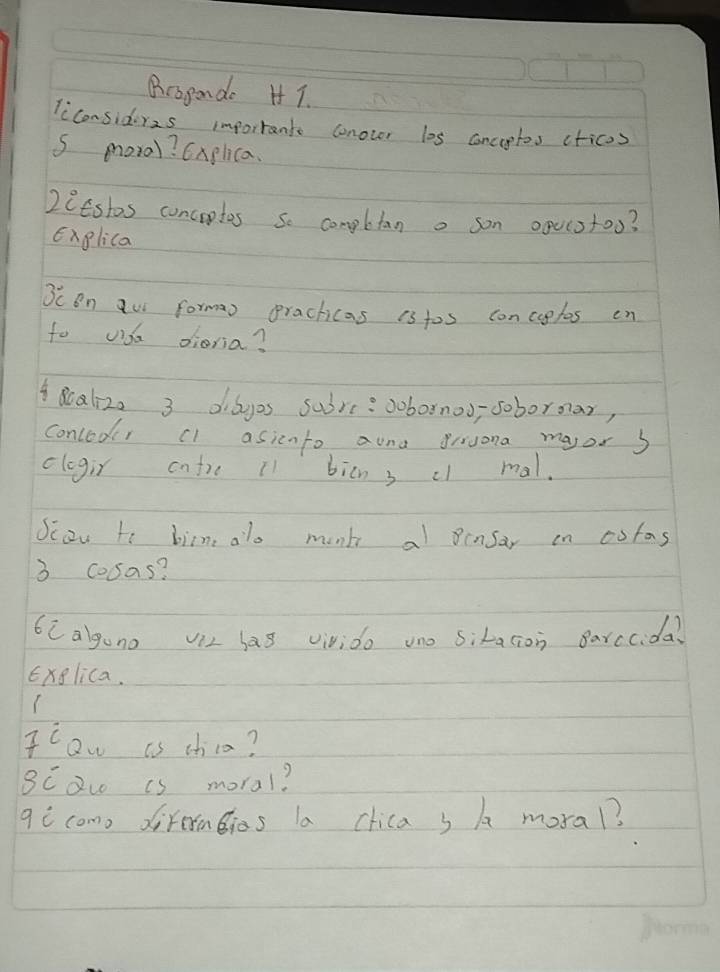 Responde #1.
1¿consideras importante conocer los conceptos eticos
y moral? Explica.
2¿Estos conceptos se completan o son opuestos?
Explica
3¿en que formas practicas estos conceptos en
tu vida diaria?
4 Realiza 3 dibujos sobre: sobornos, sobornar,
conceder el asiento a una persona mayor y
elegir entre el bien y el mal.
5¿Qu te biene a la mente al pensar en estas
3 cosas?
6¿alguna vez has vivido una sitacion parecida?
Explica.
7¿Que es etica?
8¿Que es moral?
9¿como diferencias la etica y la moral?
Norma